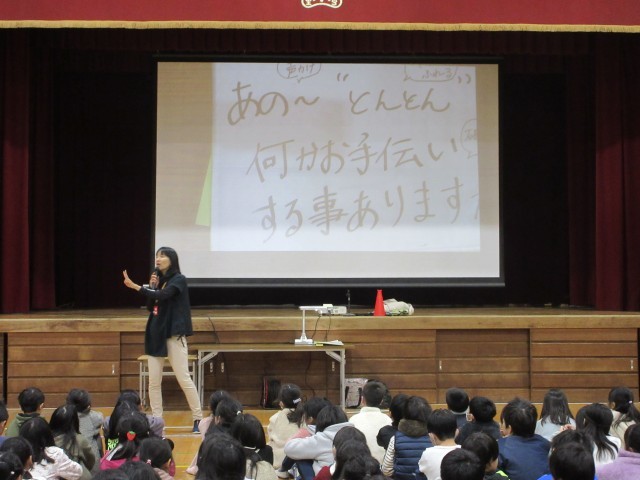 あの〜 "とんとん
何かお手伝い
する事あります